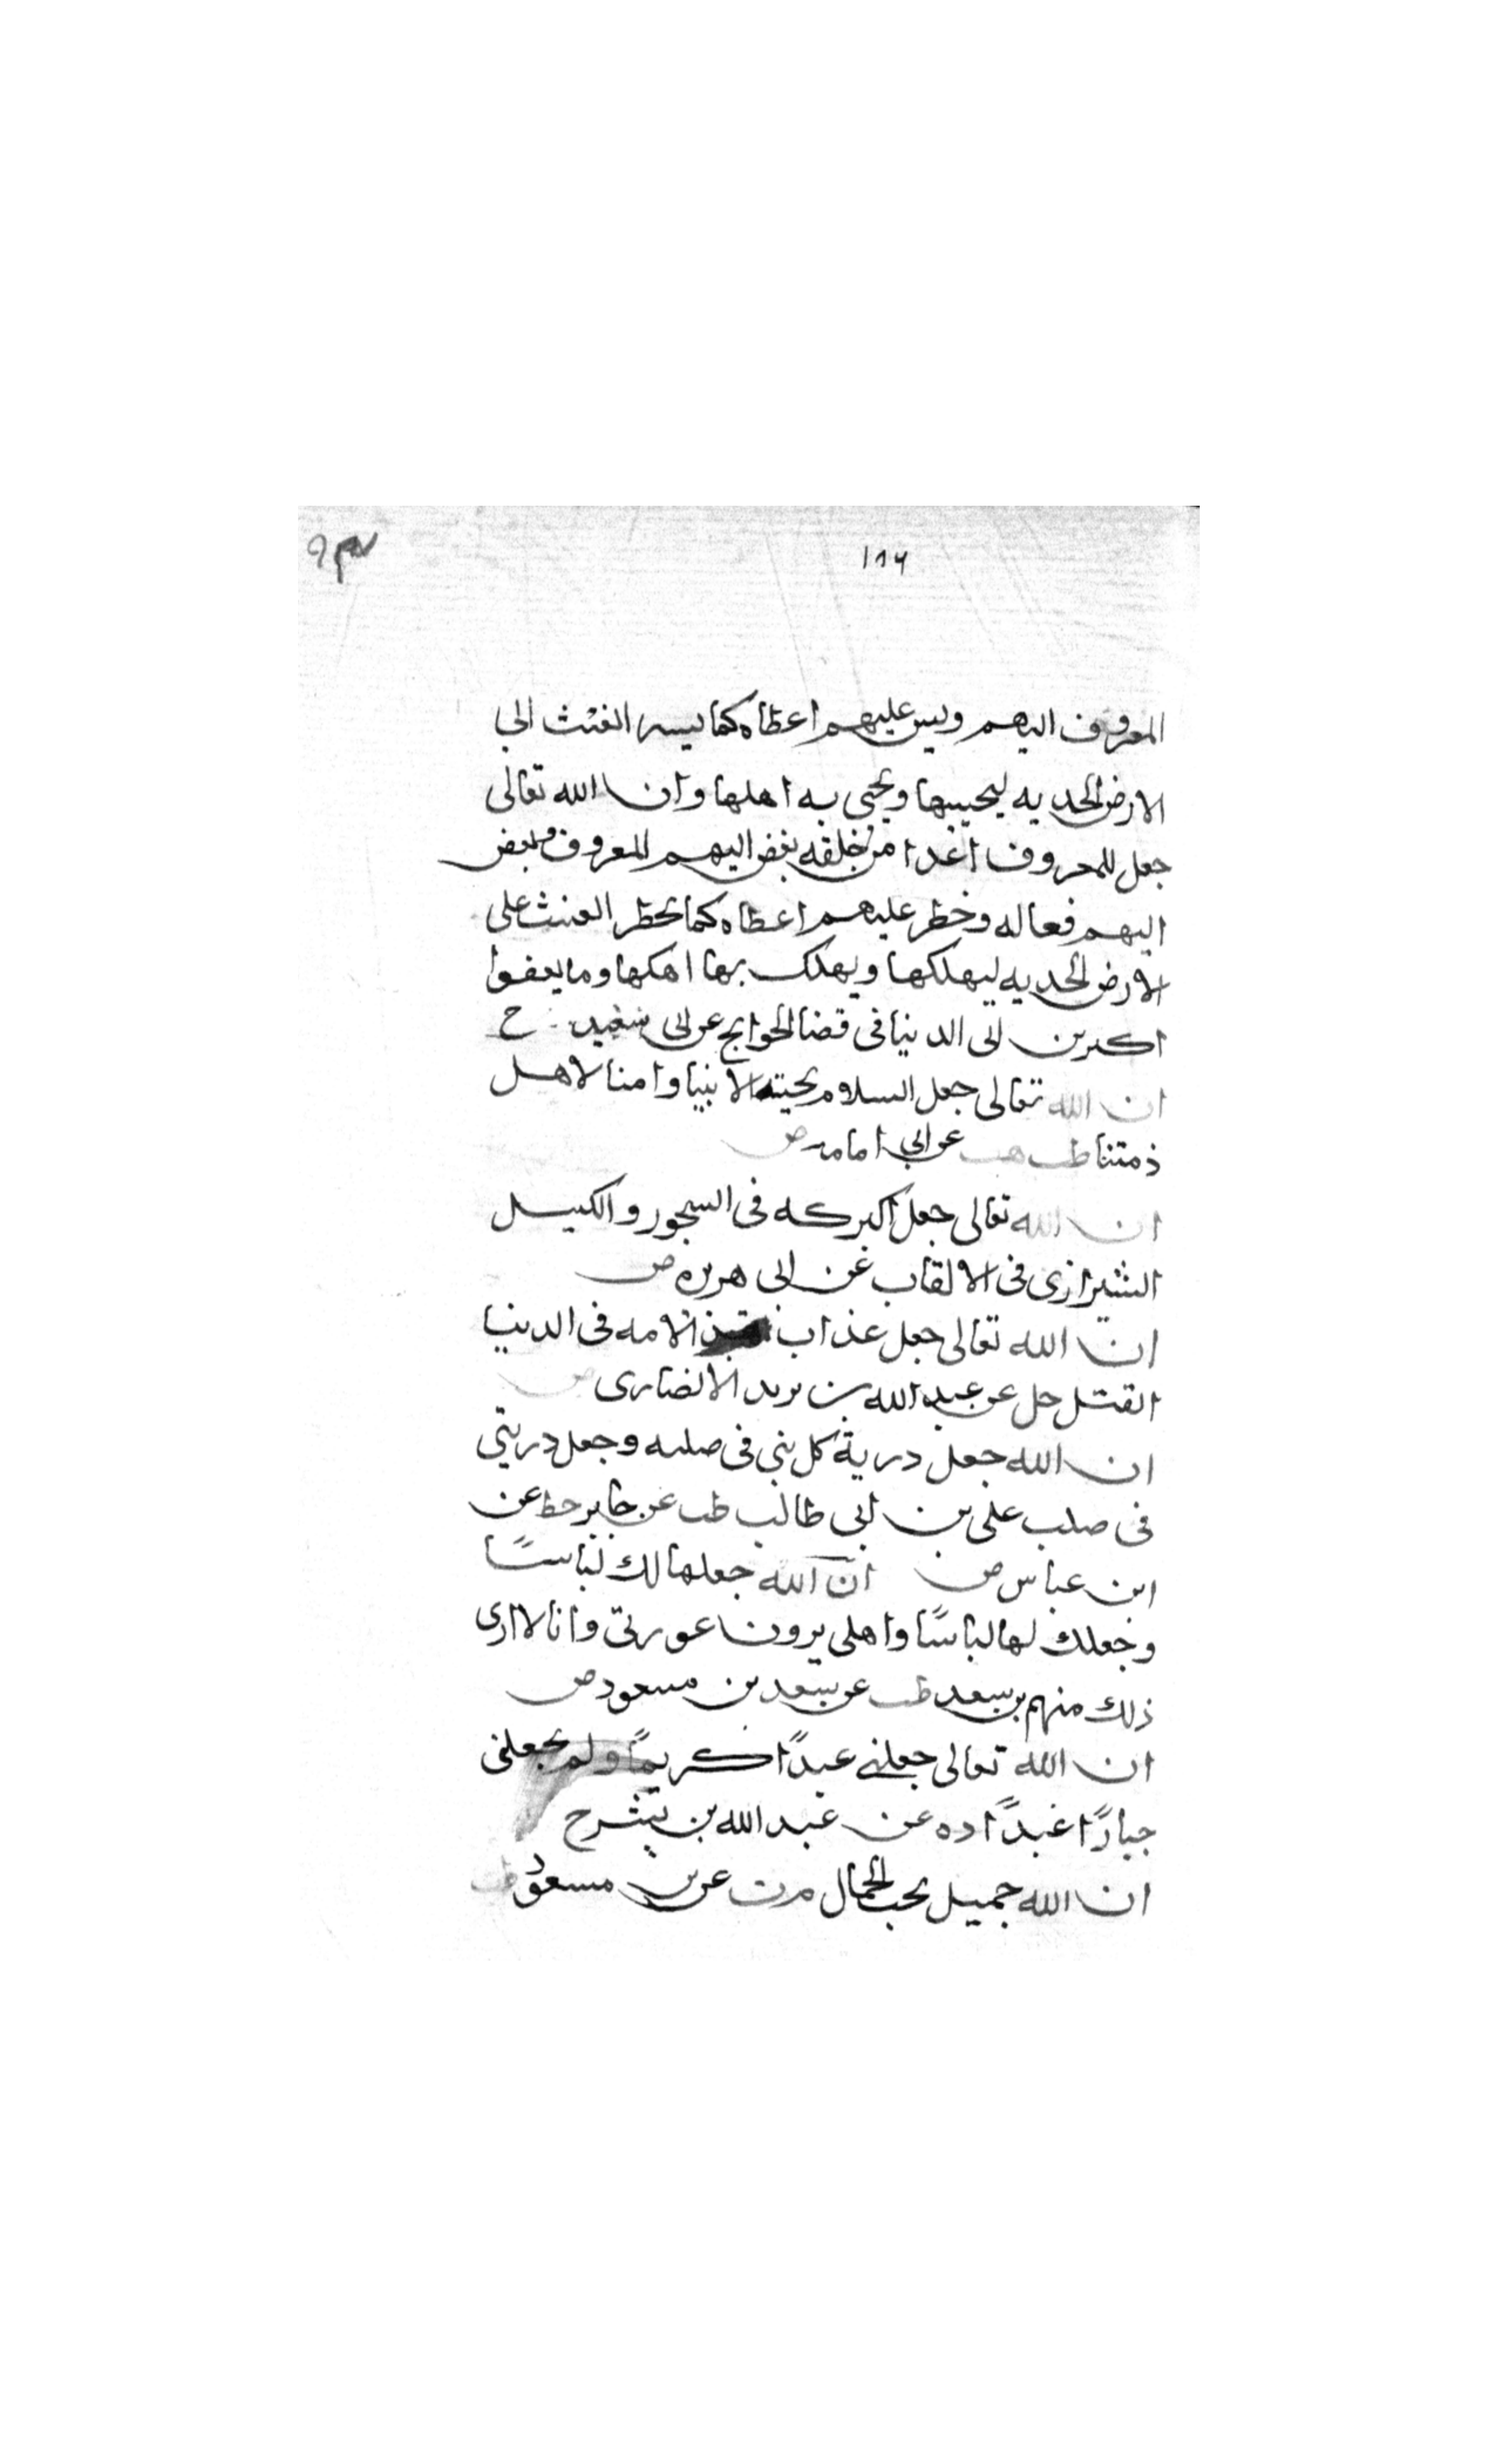 ١٨٤
المعروف اليهم ويسر عليهم اعطاه كما يسر الغيث الي
الارض الجديه ليحييها ويحيي به اهلها وان الله تعالى
جعل للمعروف اعدا من خلقه بغض اليهم المعروف وبغض
اليهم فعاله وحظر عليهم اعطاه كما يحظر الغيث على
الارض الجديه ليهلكها ويهلك بها اهلها وما يعفوا
اكثر بن ابى الدنيا فى قضا الحوايج عن ابى سعيد ح
ان الله تعالى جعل السلام تحية الانبيا وامنا لاهل
ذمتنا طب هب عن ابي امامه ض
ان الله تعالى جعل البركه فى السحور والكيل
الشيرازى فى الالقاب عن ابى هريره ض
ان الله تعالى جعل عذاب هذه الامه فى الدنيا
القتل حل عن عبد الله بن يزيد الانصارى ض
ان الله جعل درية كل نبي فى صلبه وجعل دريتي
فى صلب على بن ابى طالب طب عن جابر خط عن
ابن عباس ض ان الله جعلها لك لباسًا
وجعلك لها لباسًا واهلى يرون عورتى وانا لا ارى
ذلك منهم بن سعد طب عن سعد بن مسعود ض
ان الله تعالى جعلنى عبدًا كريمًا ولم يجعلنى
جبارًا عنيدًا ده عن عبد الله بن بشر ح
ان الله جميل يحب الجمال م ت عن بن مسعود طب